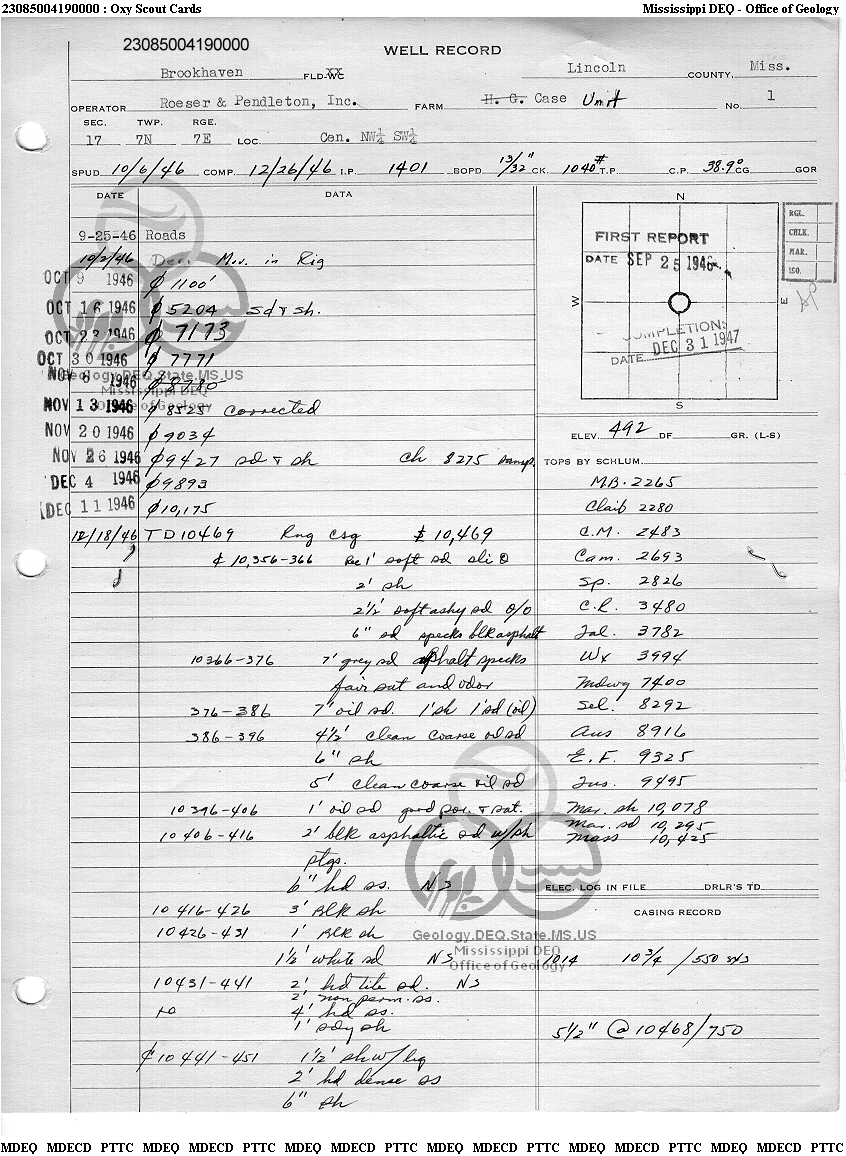 23085004190000 : Oxy Scout Cards
Mississippi DEQ - Office of Geology
23085004190000
WELL RECORD
Brookhaven FLD-WC XX Lincoln COUNTY, Miss.
OPERATOR Roeser & Pendleton, Inc. FARM H. G. Case Unit No. 1
SEC. TWP. RGE.
17 7N 7E LOC. Cen. NW¼ SW¼
SPUD 10/6/46 COMP. 12/26/46 I.P. 1401 BOPD 13/32" CK. 1040# T.P. C.P. 38.9° CG GOR
DATE DATA
9-25-46 Roads
10/2/46 Der. Mov. in Rig
OCT 9 1946 ₵ 1100'
OCT 16 1946 ₵ 5204 sd & sh.
OCT 23 1946 ₵ 7173
OCT 30 1946 ₵ 7771
NOV 6 1946 ₵
NOV 13 1946 ₵ 8525 corrected
NOV 20 1946 ₵ 9034
NOV 26 1946 ₵ 9427 sd & sh Ch 8275
DEC 4 1946 ₵ 9893
DEC 11 1946 ₵ 10,175
12/18/46 TD 10469 Rng csg $ 10,469
₵ 10,356-366 Rec 1' soft sd sli O
2' sh
2½' soft ashy sd o/o
6" sd specks blk asphalt
10366-376 7' grey sd asphalt specks
fair sat and odor
376-386 7' oil sd. 1' sh 1' sd (oil)
386-396 4½' clean coarse oil sd
6" sh
5' clean coarse oil sd
10396-406 1' oil sd good por. & sat.
10406-416 2' blk asphaltic sd w/sh
ptgs.
6" hd ss. NS
10416-426 3' BLK sh
10426-431 1' BLK sh
1½' white sd NS
10431-441 2' hd tite sd. NS
2' non perm. ss.
4' hd ss.
1' sdy sh
₵ 10441-451 1½' sh w/lig
2' hd dense ss
6" sh
N
W
E
S
FIRST REPORT
DATE SEP 25 1946
COMPLETION:
DATE DEC 31 1947
RGL.
CHLK.
MAR.
ISO.
ELEV. 492 DF GR. (L-S)
TOPS BY SCHLUM.
M.B. 2265
Claib 2280
C.M. 2483
Cam. 2693
Sp. 2826
C.R. 3480
Tal. 3782
Wx 3994
Mdwy 7400
Sel. 8292
Aus 8916
E.F. 9325
Tus. 9495
Mar. sh 10,078
Mar. sd 10,295
Mass 10,425
ELEC. LOG IN FILE DRLR'S TD.
CASING RECORD
1014 10¾ / 550 sxs
5½" @ 10468/750
Geology.DEQ.State.MS.US
Mississippi DEQ
Office of Geology
Geology.DEQ.State.MS.US
Mississippi DEQ
Office of Geology
MDEQ MDECD PTTC MDEQ MDECD PTTC MDEQ MDECD PTTC MDEQ MDECD PTTC MDEQ MDECD PTTC MDEQ MDECD PTTC